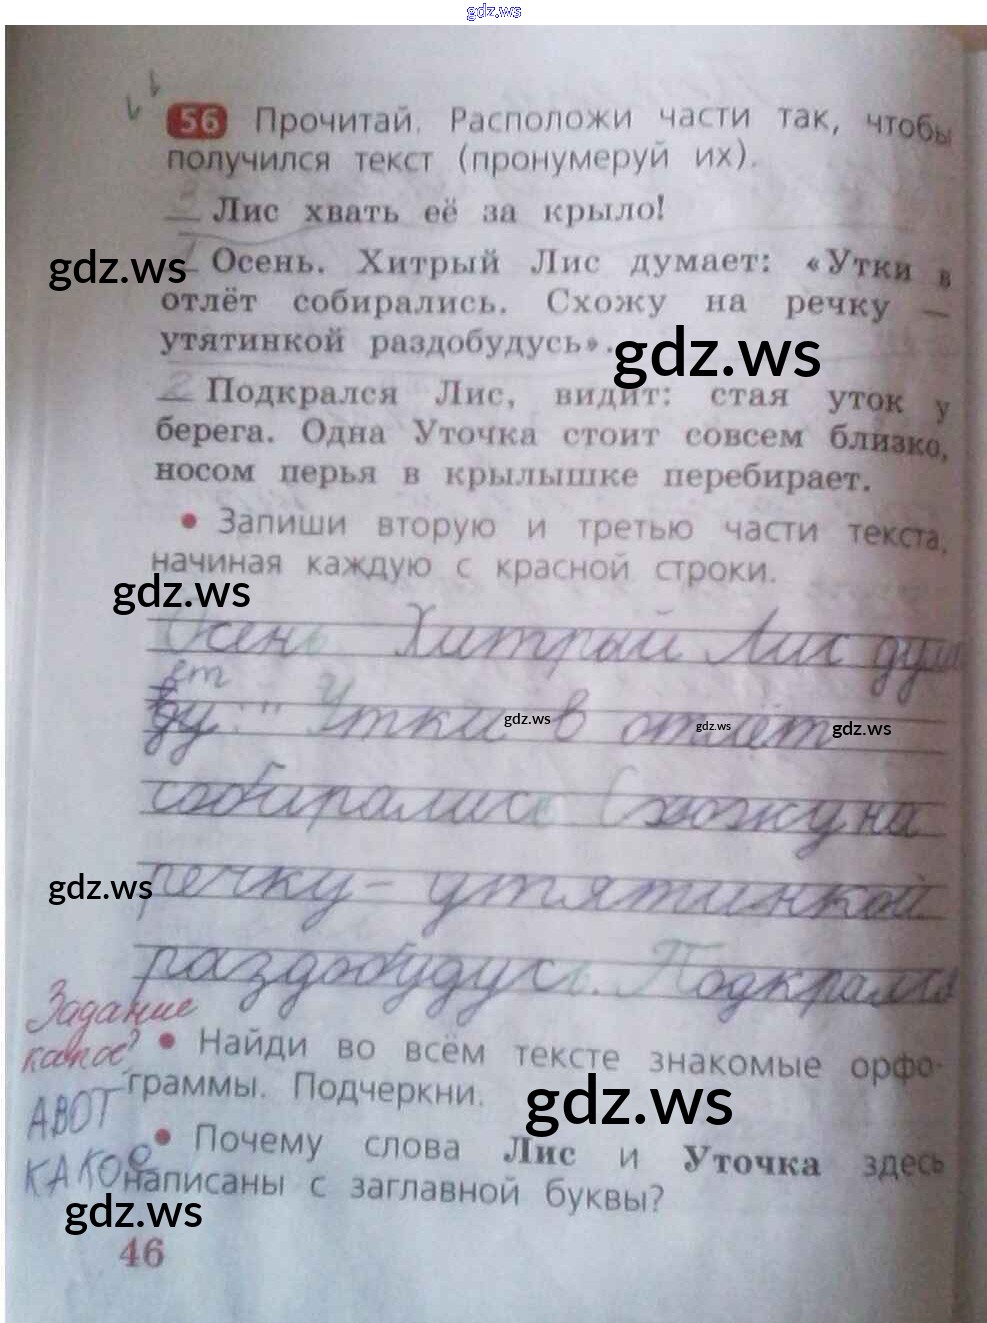 gdz.ws
56 Прочитай. Расположи части так, чтобы
получился текст (пронумеруй их).
3 Лис хвать её за крыло!
1 Осень. Хитрый Лис думает: «Утки в
gdz.ws
отлёт собирались. Схожу на речку —
утятинкой раздобудусь».
gdz.ws
2 Подкрался Лис, видит: стая уток у
берега. Одна Уточка стоит совсем близко,
носом перья в крылышке перебирает.
• Запиши вторую и третью части текста,
начиная каждую с красной строки.
gdz.ws
Осень Хитрый Лис дума
ет
ду: " Утки в отлёт
gdz.ws gdz.ws gdz.ws
собирались Схожу на
речку – утятинкой
gdz.ws
раздобудусь. Подкрался
Задание
какое?
• Найди во всём тексте знакомые орфо-
граммы. Подчеркни.
gdz.ws
АВОТ
КАКОЕ
• Почему слова Лис и Уточка здесь
написаны с заглавной буквы?
gdz.ws
46